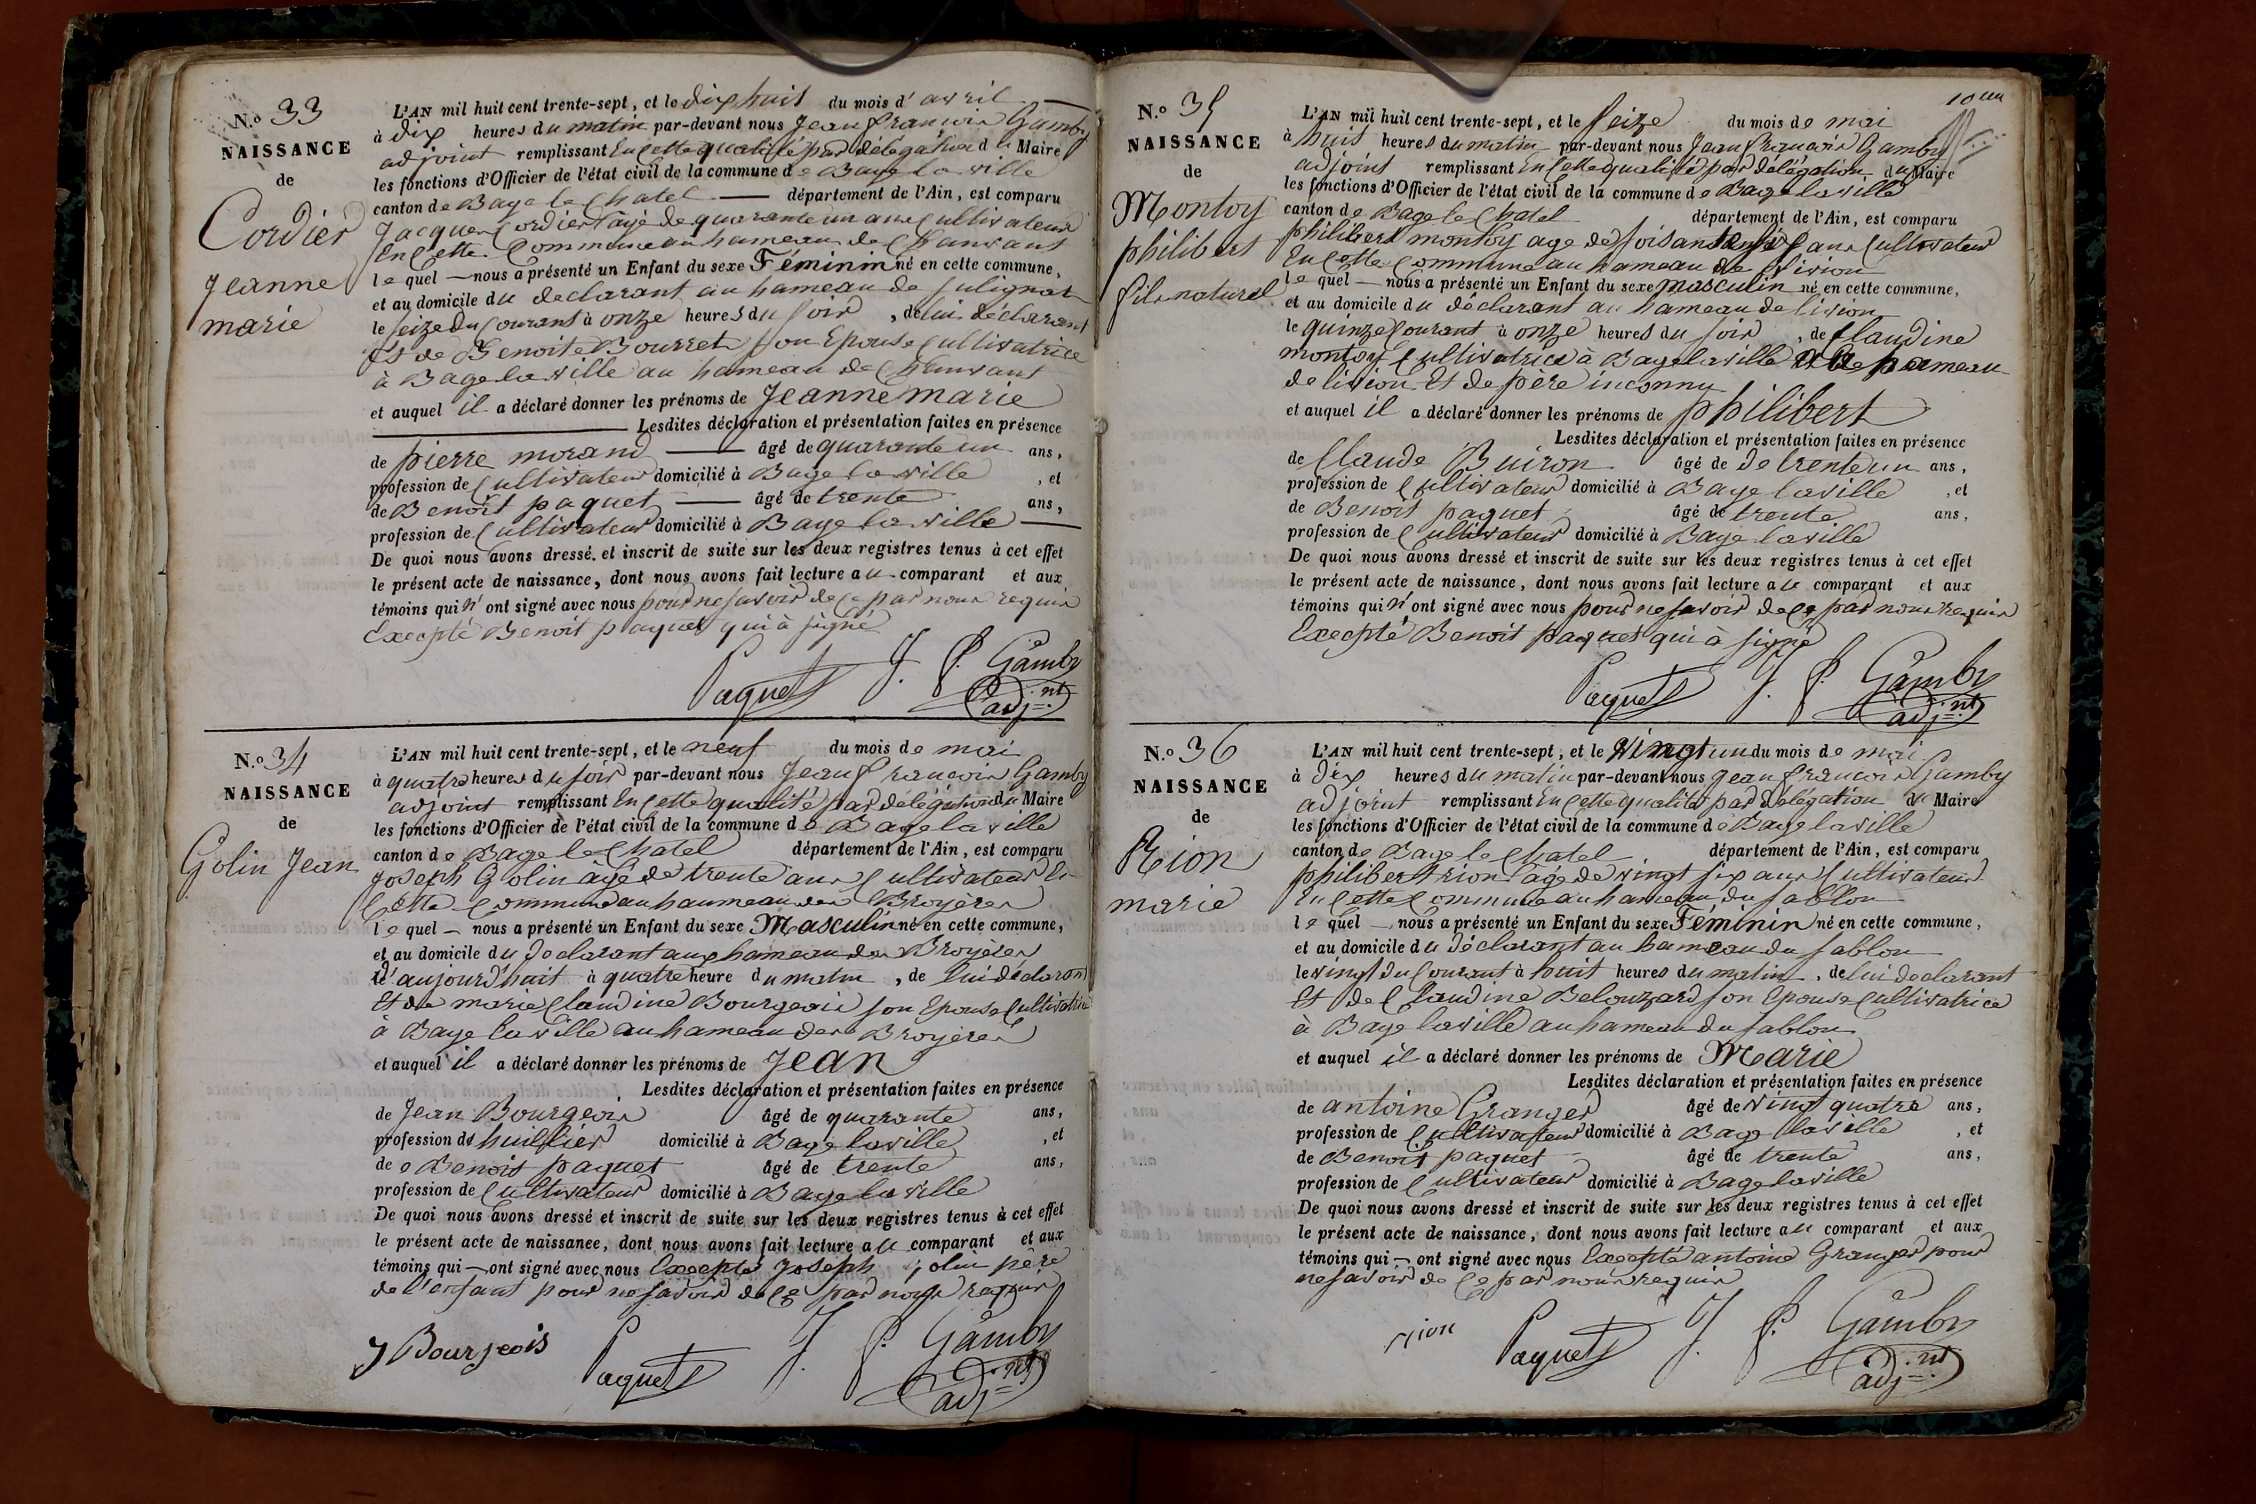 N.o 33
NAISSANCE
de
Cordier
Jeanne
marie
L'AN mil huit cent trente-sept, et le dix huit du mois d' avril
à dix heures du matin par-devant nous Jean francois Gamby
adjoint remplissant En Cette qualité par délégation du Maire
les fonctions d'Officier de l'état civil de la commune de Bage la ville
canton de Bage le Chatel département de l'Ain, est comparu
Jacques Cordier agé de quarante un ans Cultivateur
En Cette Commune au hameau de Chanvant
le quel nous a présenté un Enfant du sexe Féminin né en cette commune,
et au domicile du declarant au hameau de
le seize du Courant à onze heures du soir, de lui déclarant
Et de Benoite Bourret son Epouse Cultivatrice
à Bage la ville au hameau de Chanvant
et auquel il a déclaré donner les prénoms de Jeanne marie
Lesdites déclaration et présentation faites en présence
de pierre morand âgé de quarante un ans,
profession de Cultivateur domicilié à Bage la ville, et
de Benoit paquet âgé de trente ans,
profession de Cultivateur domicilié à Bage la ville
De quoi nous avons dressé et inscrit de suite sur les deux registres tenus à cet effet
le présent acte de naissance, dont nous avons fait lecture au comparant et aux
témoins qui n' ont signé avec nous pour ne savoir de ce par nous requis
Excepté Benoit paquet qui à signé
Paquet J. f. Gamby
adj.nt
N.o 34
NAISSANCE
de
Golin Jean
L'AN mil huit cent trente-sept, et le neuf du mois de mai
à quatre heures du soir par-devant nous Jean francois Gamby
adjoint remplissant En Cette qualité par délégation du Maire
les fonctions d'Officier de l'état civil de la commune de Bage la ville
canton de Bage le Chatel département de l'Ain, est comparu
Joseph Golin âgé de trente ans Cultivateur En
Cette Commune au haumeau des Broyères
le quel nous a présenté un Enfant du sexe Masculin né en cette commune,
et au domicile du declarant aux hameau des Broyères
d'aujourd'huit à quatre heure du matin, de lui déclarant
Et de marie Claudine Bourgeois son Epouse Cultivatrice
à Bage la ville au hameau des Broyères
et auquel il a déclaré donner les prénoms de Jean
Lesdites déclaration et présentation faites en présence
de Jean Bourgeois âgé de quarante ans,
profession de huillier domicilié à Bage la ville, et
de Benoit paquet âgé de trente ans,
profession de Cultivateur domicilié à Bage la ville
De quoi nous avons dressé et inscrit de suite sur les deux registres tenus à cet effet
le présent acte de naissance, dont nous avons fait lecture au comparant et aux
témoins qui ont signé avec nous Excepté Joseph golin père
de l'enfant pour ne savoir de ce par nous requis
J Bourjeois Paquet J. f. Gamby
adj.nt
10 
N.o 35
NAISSANCE
de
Montoy
philibert
fils naturel
L'AN mil huit cent trente-sept, et le seize du mois de mai
à huit heures du matin par-devant nous Jean francois Gamby
adjoint remplissant En Cette qualité par délégation du Maire
les fonctions d'Officier de l'état civil de la commune de Bage la ville
canton de Bage le Chatel département de l'Ain, est comparu
philibert montoy age de soisante six ans Cultivateur
En Cette Commune au hameau de livion
le quel nous a présenté un Enfant du sexe masculin né en cette commune,
et au domicile du déclarant au hameau de livion
le quinze Courant à onze heures du soir, de Claudine
montoy Cultivatrice à Bage la ville hameau
de livion Et de père inconnu
et auquel il a déclaré donner les prénoms de philibert
Lesdites déclaration et présentation faites en présence
de Claude Buiron âgé de de trente un ans,
profession de Cultivateur domicilié à Bage la ville, et
de Benoit paquet âgé de trente ans,
profession de Cultivateur domicilié à Bage la ville
De quoi nous avons dressé et inscrit de suite sur les deux registres tenus à cet effet
le présent acte de naissance, dont nous avons fait lecture au comparant et aux
témoins qui n' ont signé avec nous pour ne savoir de ce par nous requis
Excepté Benoit paquet qui à signé
Paquet J. f. Gamby
adj.nt
N.o 36
NAISSANCE
de
Rion
marie
L'AN mil huit cent trente-sept, et le vingt un du mois de mai
à dix heures du matin par-devant nous Jean francois Gamby
adjoint remplissant En Cette qualité par délégation du Maire
les fonctions d'Officier de l'état civil de la commune de Bage la ville
canton de Bage le Chatel département de l'Ain, est comparu
philibert rion agé de vingt six ans Cultivateur
En Cette Commune au hameau du sablon
le quel nous a présenté un Enfant du sexe Féminin né en cette commune,
et au domicile du déclarant au hameau du sablon
le vingt du Courant à huit heures du matin, de lui declarant
Et de Claudine Belouzard son Epouse Cultivatrice
à Bage la ville au hameau du sablon
et auquel il a déclaré donner les prénoms de Marie
Lesdites déclaration et présentation faites en présence
de antoine Granger âgé de vingt quatre ans,
profession de Cultivateur domicilié à Bage la ville, et
de Benoit paquet âgé de trente ans,
profession de Cultivateur domicilié à Bage la ville
De quoi nous avons dressé et inscrit de suite sur les deux registres tenus à cet effet
le présent acte de naissance, dont nous avons fait lecture au comparant et aux
témoins qui ont signé avec nous Excepté antoine Granger pour
ne savoir de ce par nous requis
rion Paquet J. f. Gamby
adj.nt